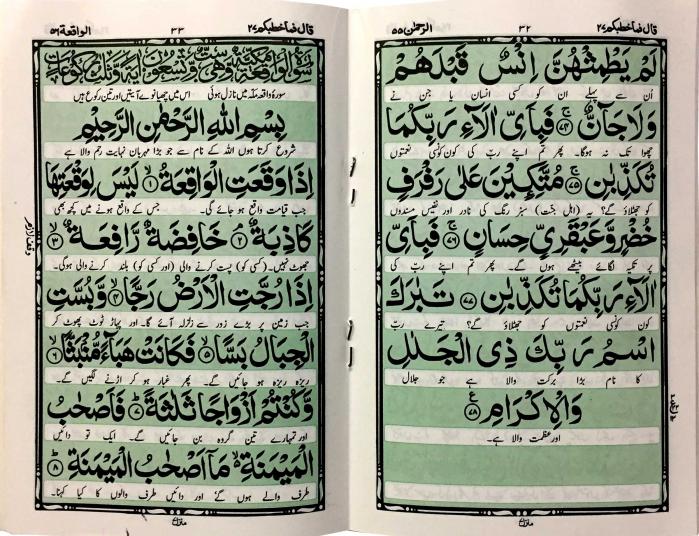 قال فما خطبکم ۲۷
۳۲
الرحمٰن ۵۵
لَمْ يَطْمِثْهُنَّ اِنْسٌ قَبْلَهُمْ
اُن سے پہلے ان کو کسی انسان یا جن نے
وَلَا جَآنٌّ ۚ﴿۷۴﴾ فَبِاَىِّ اٰلَآءِ رَبِّكُمَا
چھوا تک نہ ہوگا۔ پھر تم اپنے ربّ کی کون کونسی نعمتوں
تُكَذِّبٰنِ ۚ﴿۷۵﴾ مُتَّكِـِٕيْنَ عَلٰى رَفْرَفٍ
کو جھٹلاؤ گے؟ یہ (اہل جنّت) سبز رنگ کی نادر اور نفیس مسندوں
خُضْرٍ وَّعَبْقَرِىٍّ حِسَانٍ ۚ﴿۷۶﴾ فَبِاَىِّ
پر تکیہ لگائے بیٹھے ہوں گے۔ پھر تم اپنے ربّ کی
اٰلَآءِ رَبِّكُمَا تُكَذِّبٰنِ ﴿۷۷﴾ تَبٰرَكَ
کون کونسی نعمتوں کو جھٹلاؤ گے؟ تیرے ربّ
اسْمُ رَبِّكَ ذِى الْجَلٰلِ
کا نام بڑا برکت والا ہے جو جلال
وَالْاِكْرَامِ ﴿۷۸﴾
اور عظمت والا ہے۔
منزل
قال فما خطبکم ۲۷
۳۳
الواقعة ۵۶
سورۂ واقعہ مکہ میں نازل ہوئی اس میں چھیانوے آیتیں اور تین رکوع ہیں
بِسْمِ اللهِ الرَّحْمٰنِ الرَّحِيْمِ
شروع کرتا ہوں اللہ کے نام سے جو بڑا مہربان نہایت رحم والا ہے
اِذَا وَقَعَتِ الْوَاقِعَةُ ۙ﴿۱﴾ لَيْسَ لِوَقْعَتِهَا
جب قیامت واقع ہو جائے گی۔ جس کے واقع ہونے میں کچھ بھی
كَاذِبَةٌ ۘ﴿۲﴾ خَافِضَةٌ رَّافِعَةٌ ۙ﴿۳﴾
جھوٹ نہیں۔ (کسی کو) پست کرنے والی (اور کسی کو) بلند کرنے والی ہوگی۔
اِذَا رُجَّتِ الْاَرْضُ رَجًّا ۙ﴿۴﴾ وَّبُسَّتِ
جب زمین پر بڑے زور سے زلزلہ آئے گا۔ اور پہاڑ ٹوٹ پھوٹ کر
الْجِبَالُ بَسًّا ۙ﴿۵﴾ فَكَانَتْ هَبَآءً مُّنْۢبَثًّا ۙ﴿۶﴾
ریزہ ریزہ ہو جائیں گے۔ پھر غبار ہو کر اڑنے لگیں گے۔
وَّكُنْتُمْ اَزْوَاجًا ثَلٰثَةً ؕ﴿۷﴾ فَاَصْحٰبُ
اور تمہارے تین گروہ بن جائیں گے۔ ایک تو دائیں
الْمَيْمَنَةِ ۙ مَاۤ اَصْحٰبُ الْمَيْمَنَةِ ؕ﴿۸﴾
طرف والے ہوں گے اور دائیں طرف والوں کا کیا کہنا۔
منزل